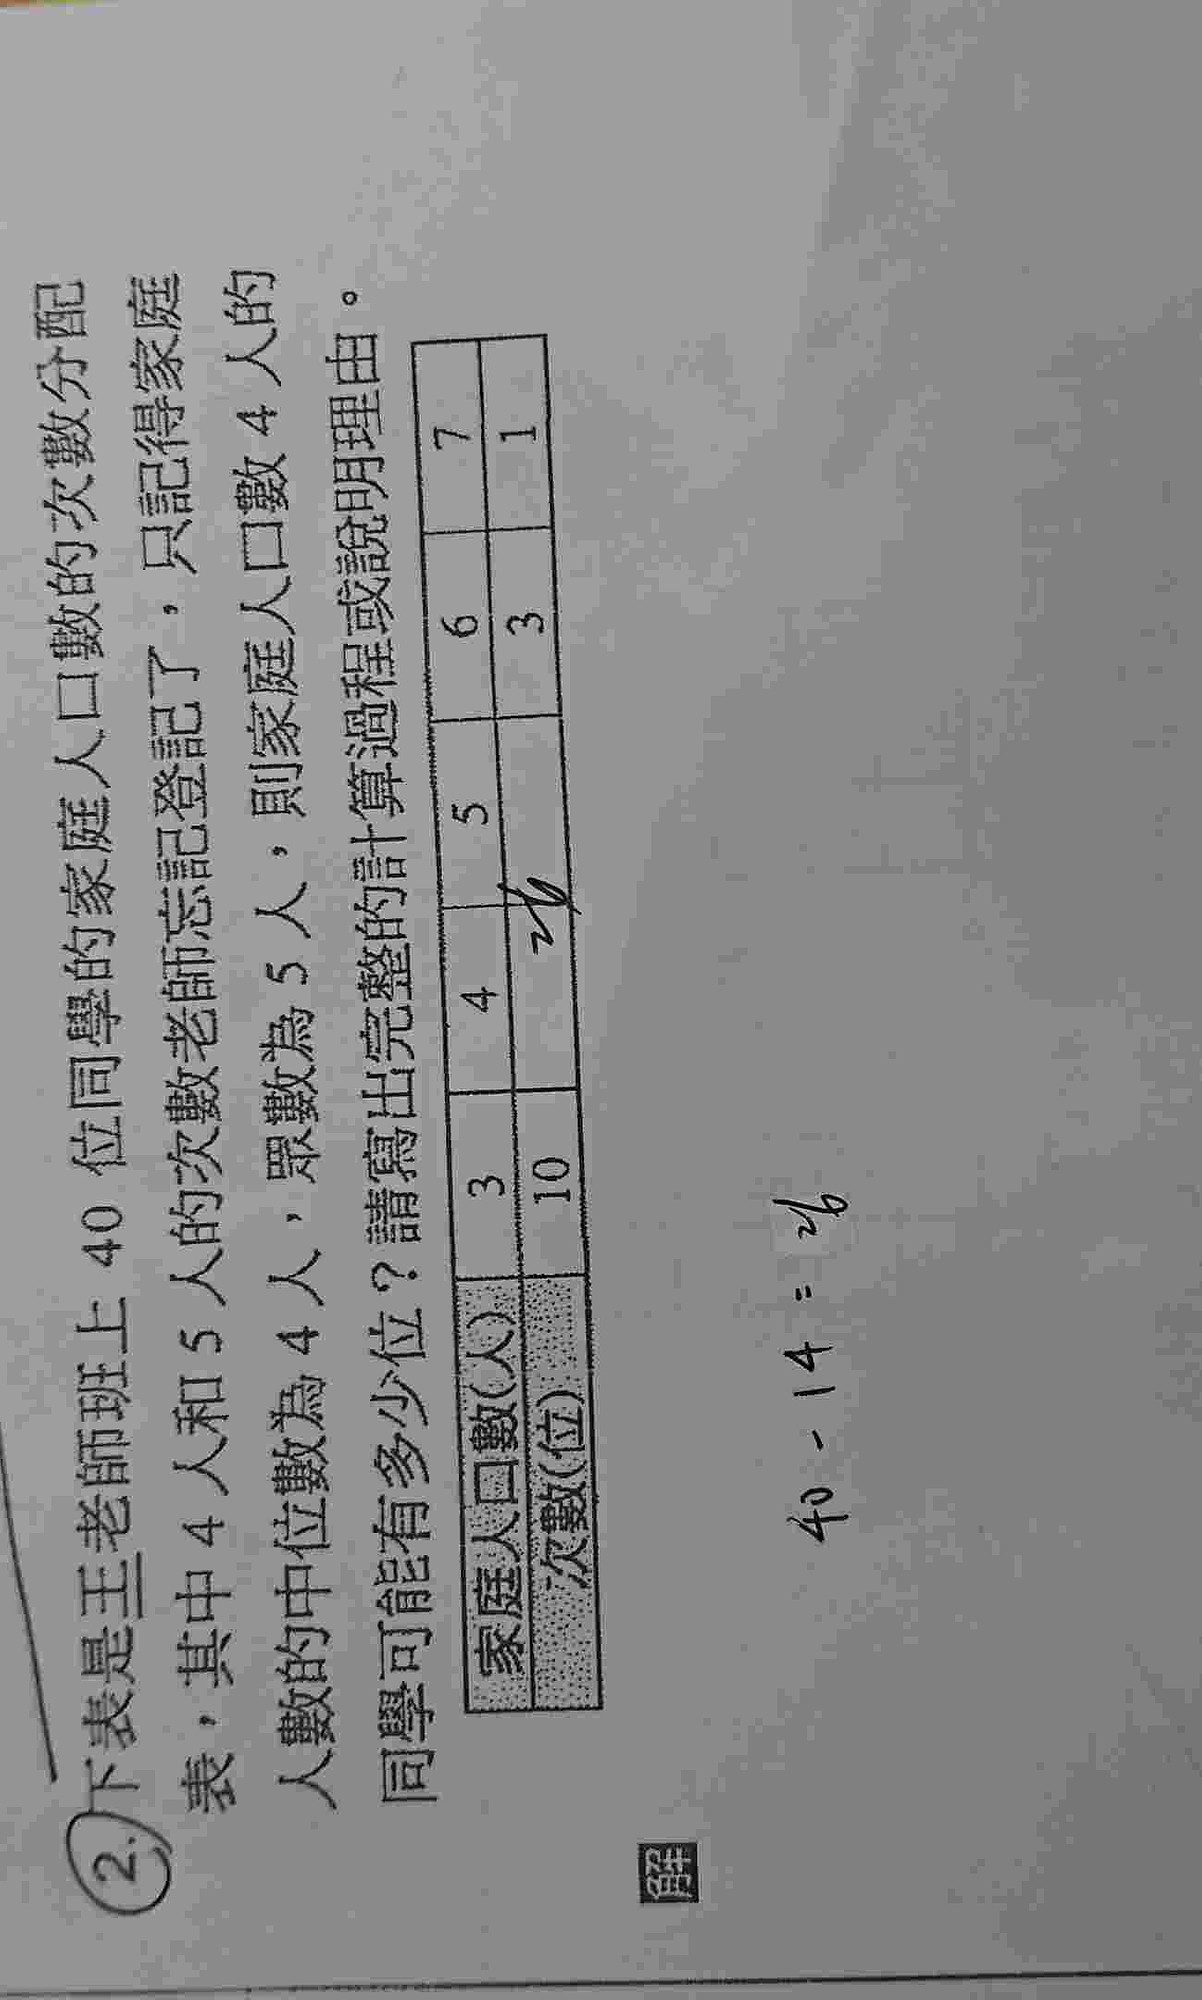 2. 下表是王老師班上 40 位同學的家庭人口數的次數分配
表，其中 4 人和 5 人的次數老師忘記登記了，只記得家庭
人數的中位數為 4 人，眾數為 5 人，則家庭人口數 4 人的
同學可能有多少位？請寫出完整的計算過程或說明理由。
家庭人口數(人) 3 4 5 6 7
次數(位) 10 26 3 1
解
40 - 14 = 26